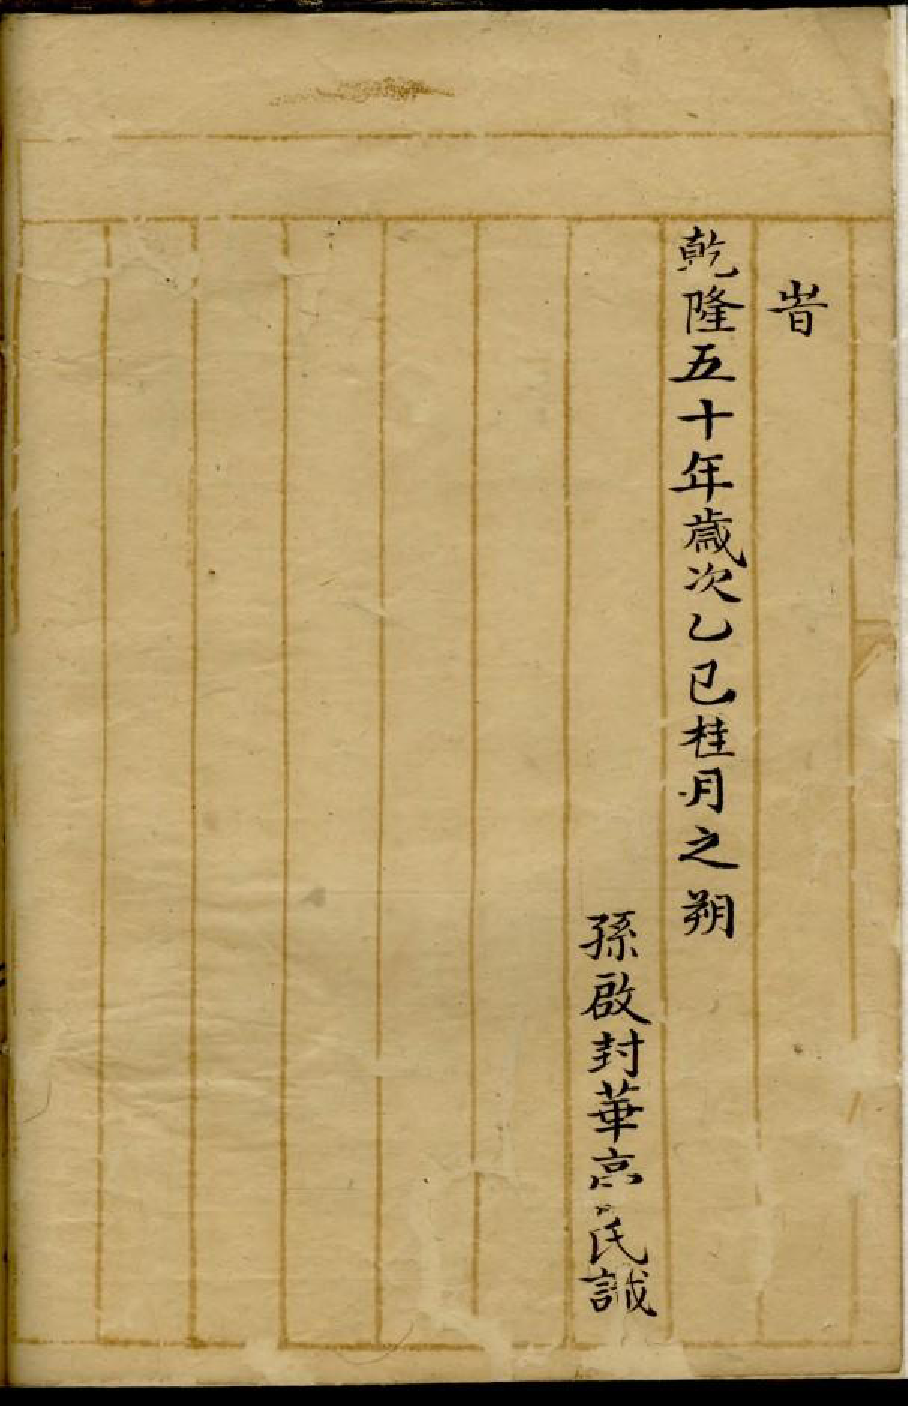 旹
乾隆五十年歲次乙巳桂月之朔
孫啟封華亭氏識